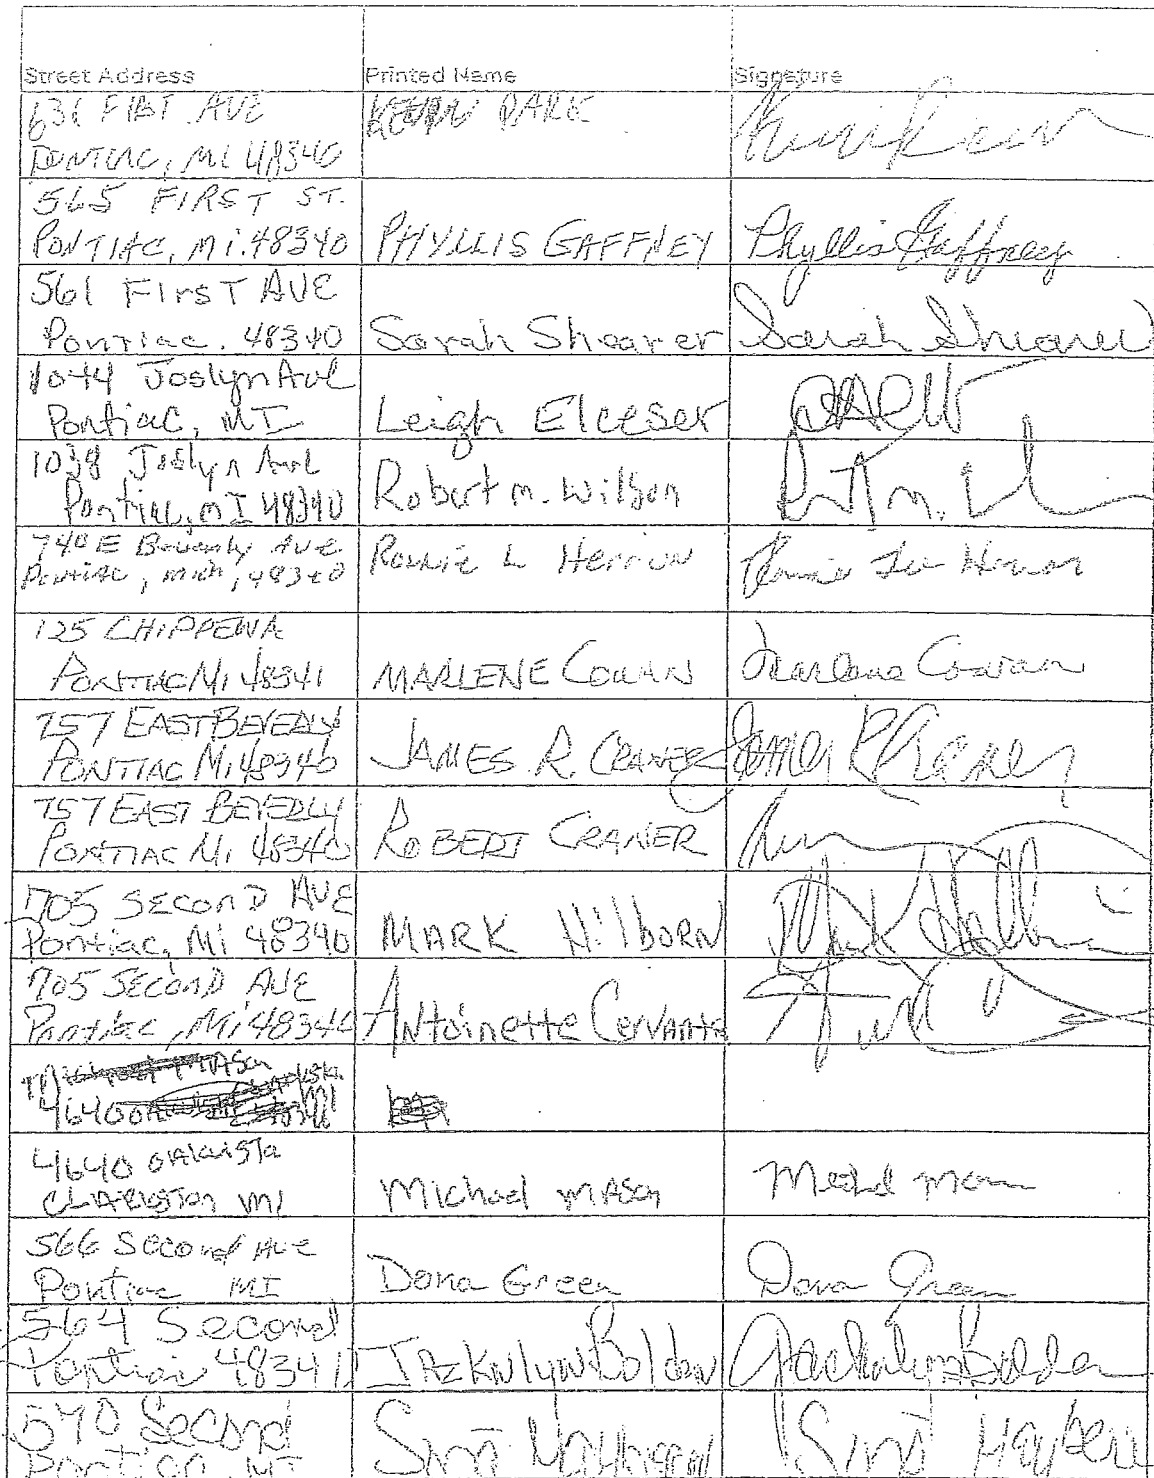 Street Address Printed Name Signature
631 FIRST AVE PARK
PONTIAC, MI 48340
565 FIRST ST.
PONTIAC, Mi. 48340 PHYLLIS GAFFNEY Phyllis Gaffney
561 FIrsT AVE
Pontiac. 48340 Sarah Shearer Sarah Shearer
1044 Joslyn Ave
Pontiac, MI Leigh Elceser
1038 Joslyn Ave Robert m. Wilson
Pontiac, mI 48340
740 E Beverly Ave Ronnie L Herrion
Pontiac, mich, 48340
125 CHIPPEWA
PONTIAC Mi 48341 MARLENE COWAN Marlene Cowan
757 EAST BEVERLY
PONTIAC Mi 48340 JAMES R. CRANER James R Craner
757 EAST BEVERLY
PONTIAC Mi 48340 ROBERT CRANER
705 SECOND AVE
Pontiac, Mi 48340 MARK HilboRN
705 SECOND AVE
Pontiac, Mi 48340 ANtoinette
4640
CLARKSTON MI Michael MASON
566 Second Ave
Pontiac MI Dona Green Dona Green
564 Second
Pontiac 48341 Bolden Bolden
570 Second
Pontiac MI